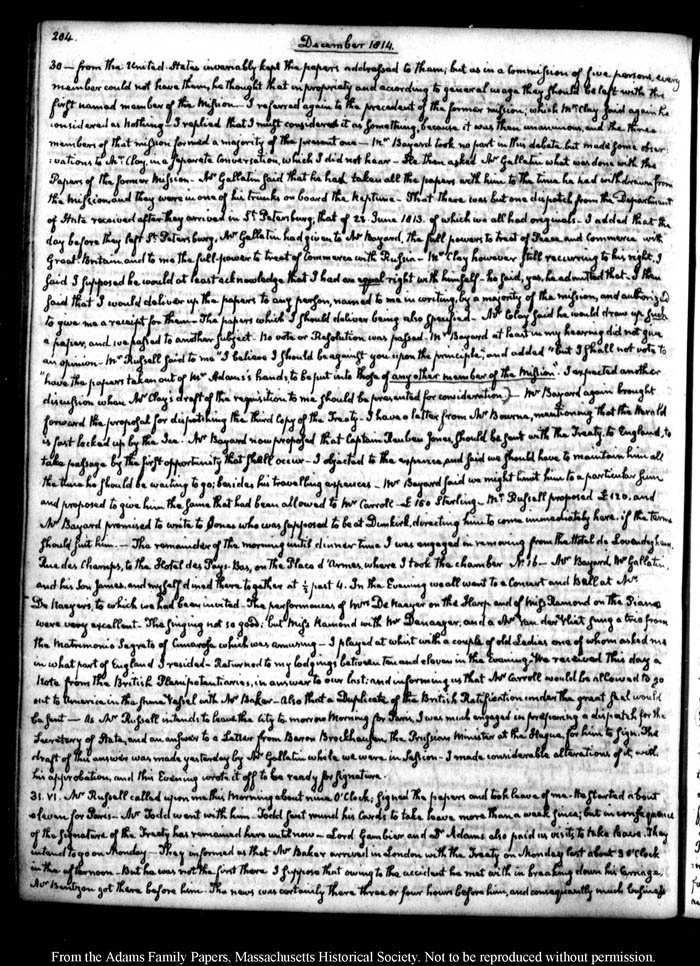 204.
December 1814.
30 — from the United States invariably kept the papers addressed to them; but as in a Commission of five persons, every
member could not have them, he thought that in propriety and according to general usage they should be left with the
first named member of the Mission — I referred again to the precedent of the former mission; which Mr Clay said again he
considered as nothing — I replied that I must consider it as something, because it was then unanimous, and the three
members of that mission formed a majority of the present one — Mr Bayard took no part in this debate but made some obser:
:vations to Mr Clay, in a separate Conversation, which I did not hear — He then asked Mr Gallatin what was done with the
Papers of the former Mission. Mr Gallatin said that he had taken all the papers with him to the time he had withdrawn from
the Mission, and they were in one of his trunks on board the Neptune — That there was but one dispatch from the Department
of State received after they arrived in St. Petersburg, that of 23 June 1813. of which we all had originals. I added that the
day before they left St. Petersburg, Mr Gallatin had given to Mr Bayard, the full powers to treat of Peace and Commerce with
Great-Britain and to me the full-power to treat of Commerce with Russia — Mr Clay however still recurring to his right, I
said I supposed he would at least acknowledge that I had an equal right with himself — he said, yes, he admitted that. I then
said that I would deliver up the papers to any person, named to me in writing, by a majority of the mission, and authorized
to give me a receipt for them — The papers which I should deliver being also specified — Mr Clay said he would draw up such
a paper, and we passed to another subject. No vote or Resolution was passed. Mr Bayard at least in my hearing did not give
an opinion — Mr Russell said to me "I believe I should be against you upon the principle," and added "but I shall not vote to
"have the papers taken out of Mr Adams's hands, to be put into those of any other member of the Mission. I expected another
discussion when Mr Clay's draft of the requisition to me should be presented for consideration) — Mr Bayard again brought
forward the proposal for dispatching the third Copy of the Treaty — I have a letter from Mr Bourne, mentioning that the Herald
is fast locked up by the Ice. Mr Bayard now proposed that Captain Reuben Jones, should be sent with the Treaty, to England, to
take passage by the first opportunity that shall occur — I objected to the expence, and said we should have to maintain him all
the time he should be waiting to go; besides his travelling expences — Mr Bayard said we might limit him to a particular sum
and proposed to give him the same that had been allowed to Mr Carroll — £160 Sterling — Mr Russell proposed £120, and
Mr Bayard promised to write to Jones who was supposed to be at Dunkirk, directing him to come immediately here. if the terms
should suit him. — The remainder of the morning until dinner time I was engaged in removing from the Hotel de Lovendeghem,
Rue des Champs, to the Hotel des Pays-Bas, on the Place d'Armes, where I took the chamber N. 16 — Mr Bayard, Mr Gallatin,
and his Son James, and myself dined there together at ½ past 4. In the Evening we all went to a Concert and Ball at Mr
De Naeyers, to which we had been invited. The performances of Mrs De Naeyer on the Harp and of Miss Ramond on the Piano
were very excellent — The singing not so good; but Miss Ramond with Mr Denaeyer, and a Mr Van der Vliet sung a trio from
the Matrimonio Segreto of Cimarosa which was amusing — I played at whist with a couple of old Ladies one of whom asked me
in what part of England I resided — Returned to my lodgings between ten and eleven in the Evening. We received this day a
Note from the British Plenipotentiaries, in answer to our last; and informing us that Mr Carroll would be allowed to go
out to America in the same Vessel with Mr Baker — Also that a Duplicate of the British Ratification under the great seal would
be sent — As Mr Russell intends to leave the City to morrow Morning for Paris, I was much engaged in preparing a dispatch for the
Secretary of State, and an answer to a Letter from Baron Brockhausen the Prussian Minister at the Hague, for him to sign. The
draft of this answer was made yesterday by Mr Gallatin while we were in Session — I made considerable alterations of it, with
his approbation, and this Evening wrote it off to be ready for signature.
31. VI. Mr Russell called upon me this Morning about nine O'Clock; signed the papers and took leave of me. He started about
eleven for Paris — Mr Todd went with him — Todd sent round his Cards to take leave more than a week since; but in consequence
of the signature of the Treaty has remained here until now — Lord Gambier and Dr Adams also paid us visits to take leave. They
intend to go on Monday — They informed us that Mr Baker arrived in London with the Treaty on Monday last about 3 O'Clock
in the afternoon. But he was not the first there. I suppose that owing to the accident he met with in breaking down his Carriage,
Mr Bentzon got there before him. The news was certainly there three or four hours before him, and consequently much business
From the Adams Family Papers, Massachusetts Historical Society. Not to be reproduced without permission.